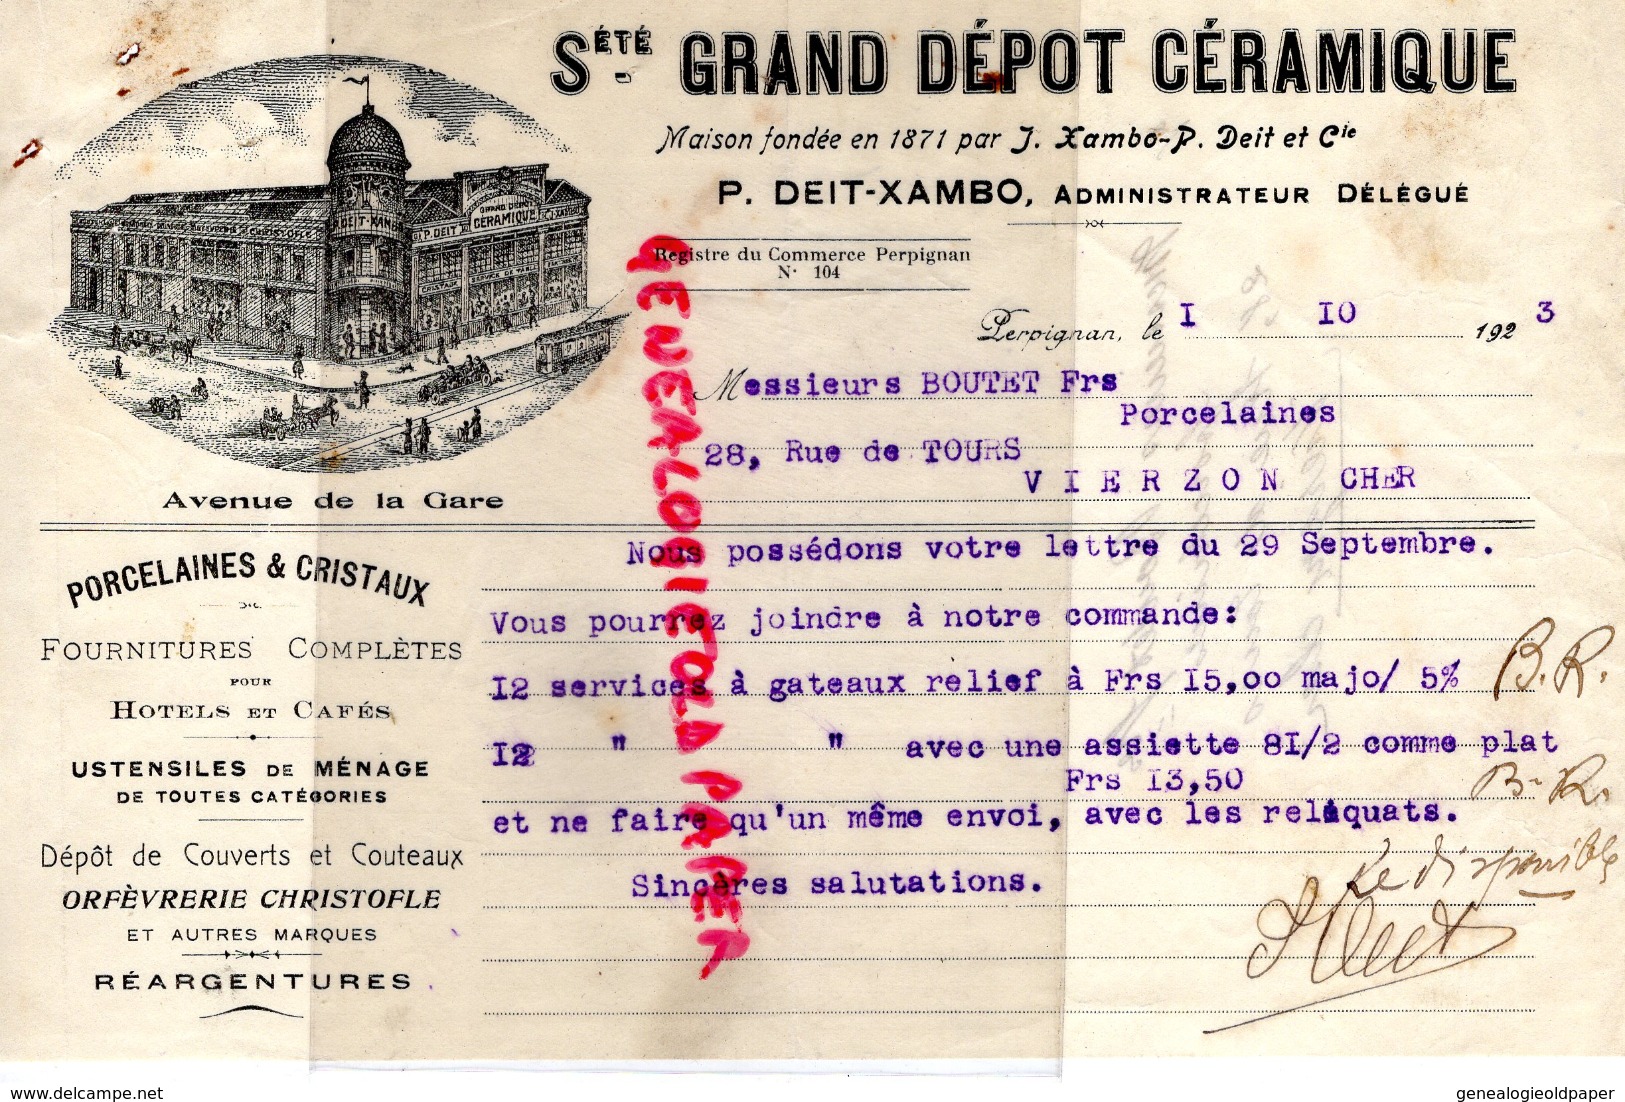 Sété GRAND DÉPOT CÉRAMIQUE
Maison fondée en 1871 par J. Xambo-P. Deit et Cie
P. DEIT-XAMBO, ADMINISTRATEUR DÉLÉGUÉ
Registre du Commerce Perpignan
N· 104
Perpignan, le I IO 1923
Messieurs BOUTET Frs
Porcelaines
28, Rue de TOURS
VIERZON CHER
GRAND DÉPOT
CÉRAMIQUE
P. DEIT
DEIT-XAM
Avenue de la Gare
PORCELAINES & CRISTAUX
FOURNITURES COMPLÈTES
POUR
HOTELS ET CAFÉS
USTENSILES DE MÉNAGE
DE TOUTES CATÉGORIES
Dépôt de Couverts et Couteaux
ORFÈVRERIE CHRISTOFLE
ET AUTRES MARQUES
RÉARGENTURES
Nous possédons votre lettre du 29 Septembre.
Vous pourrez joindre à notre commande:
I2 services à gateaux relief à Frs I5,00 majo/ 5% B.R.
I2 " " avec une assiette 8I/2 comme plat
Frs I3,50 B-R.
et ne faire qu'un même envoi, avec les reliquats.
Sincères salutations.
Le disponible
GENEALOGIE OLD PAPER
delcampe.net
genealogieoldpaper